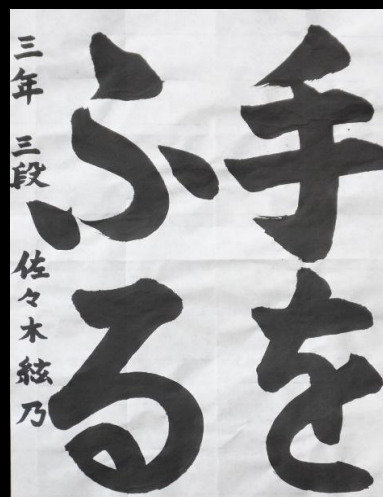 手を
ふる
三年 三段 佐々木絃乃